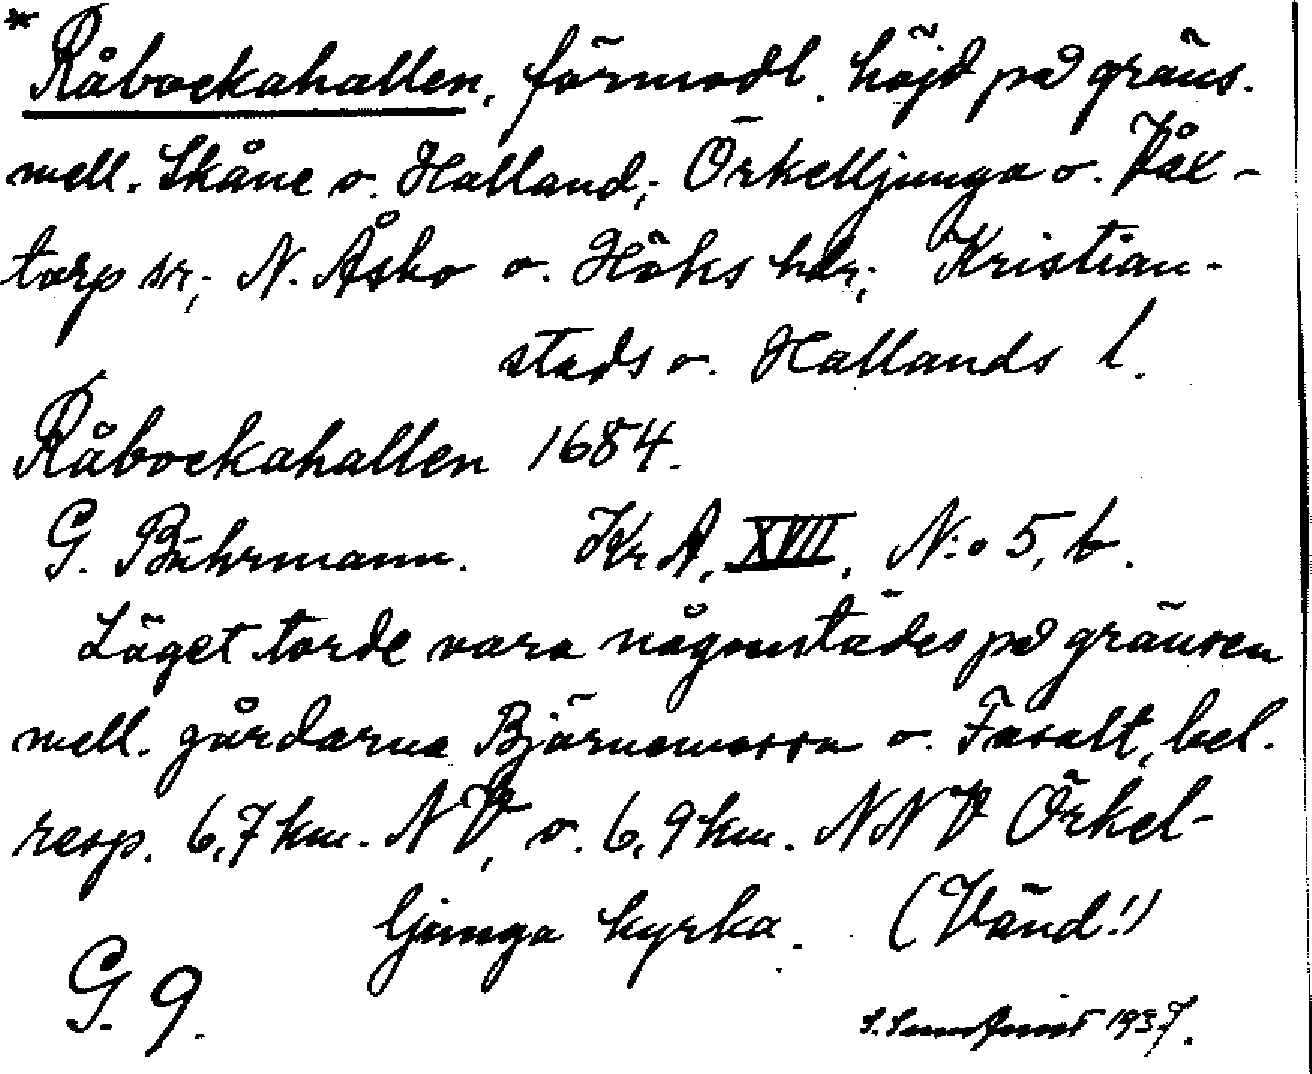 * Råbockahallen, förmodl. höjd på gräns.
mell. Skåne o. Halland; Örkelljunga o. Våx-
torp sr; N. Åsbo o. Höks hdr; Kristian-
stads o. Hallands l.
Råbockahallen 1684.
G. Buhrmann. KrA, XVII, N:o 5, b.
Läget torde vara någonstädes på gränsen
mell. gårdarna Björnamossa o. Fasalt, bel.
resp. 6,7 km. NV, o. 6,9 km. NNV Örkel-
ljunga kyrka. (Vänd!)
G. 9.
1937.